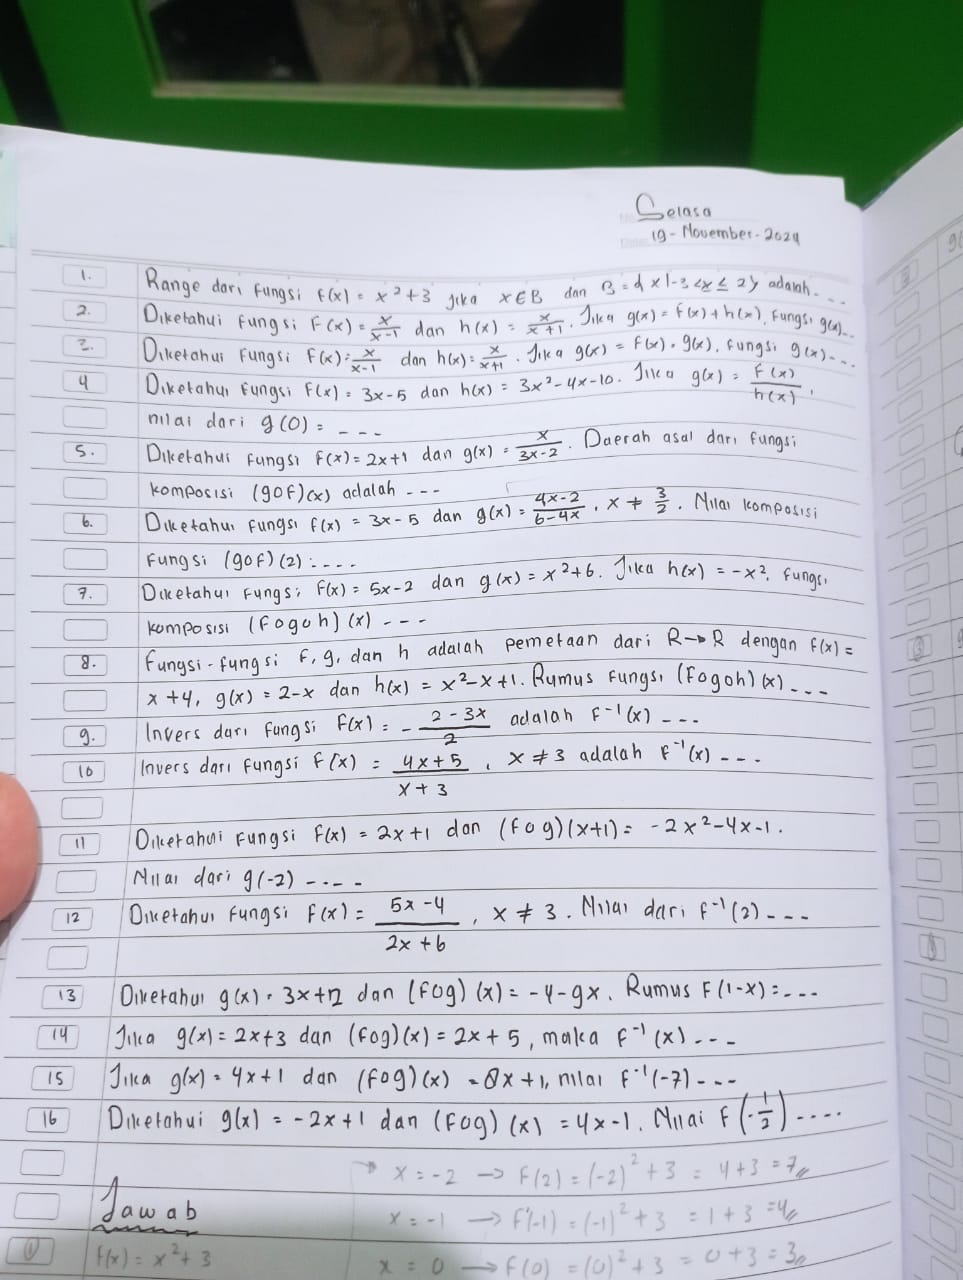 Selasa
19 - November - 2024
1. Range dari fungsi f(x) = x² + 3 jika x ∈ B dan B = { x | -3 < x ≤ 2 } adalah . . .
2. Diketahui fungsi F(x) = x/x-1 dan h(x) = x/x+1. Jika g(x) = f(x) + h(x), fungsi g(x)...
3. Diketahui fungsi F(x) = x/x-1 dan h(x) = x/x+1. Jika g(x) = F(x) . g(x), fungsi g(x)---
4 Diketahui fungsi f(x) = 3x-5 dan h(x) = 3x²-4x-10. Jika g(x) = F(x)/h(x),
nilai dari g(0) = ---
5. Diketahui fungsi f(x) = 2x+1 dan g(x) = x/3x-2. Daerah asal dari fungsi
komposisi (gof)(x) adalah ---
6. Diketahui fungsi f(x) = 3x-5 dan g(x) = 4x-2/6-4x, x ≠ 3/2. Nilai komposisi
fungsi (gof)(2) = ....
7. Diketahui fungsi f(x) = 5x-2 dan g(x) = x²+6. Jika h(x) = -x², fungsi
komposisi (fogoh)(x) ---
8. Fungsi-fungsi f, g, dan h adalah pemetaan dari R→R dengan f(x) =
x+4, g(x) = 2-x dan h(x) = x²-x+1. Rumus fungsi (fogoh)(x)...
9. Invers dari fungsi f(x) = - 2-3x/2 adalah f⁻¹(x) ---
10 Invers dari fungsi f(x) = 4x+5/x+3, x ≠ 3 adalah f⁻¹(x) ---
11 Diketahui fungsi f(x) = 2x+1 dan (fog)(x+1) = -2x²-4x-1.
Nilai dari g(-2) ----
12 Diketahui fungsi f(x) = 5x-4/2x+6, x ≠ 3. Nilai dari f⁻¹(2) ---
13 Diketahui g(x) = 3x+2 dan (fog)(x) = -4-9x. Rumus F(1-x) = ---
14 Jika g(x) = 2x+3 dan (fog)(x) = 2x+5, maka f⁻¹(x) ---
15 Jika g(x) = 4x+1 dan (fog)(x) = 8x+1, nilai f⁻¹(-7) ---
16 Diketahui g(x) = -2x+1 dan (fog)(x) = 4x-1. Nilai f(-1/2) ....
x = -2 → f(2) = (-2)² + 3 = 4+3 = 7
Jawab
x = -1 → f(-1) = (-1)² + 3 = 1+3 = 4
f(x) = x² + 3
x = 0 → f(0) = (0)² + 3 = 0+3 = 3